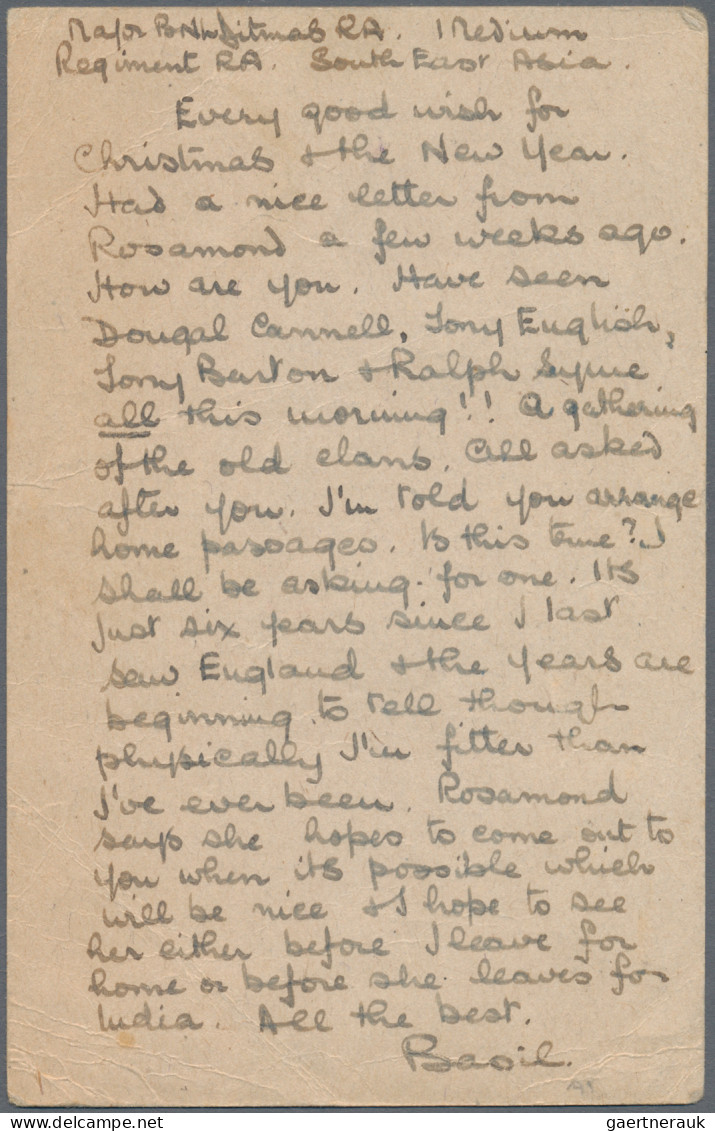 Major B Ditmas RA. 1 Medium
Regiment RA. South East Asia.
Every good wish for
Christmas & the New Year.
Had a nice letter from
Rosamond a few weeks ago.
How are you. Have seen
Dougal Cannell, Tony English,
Tony Barton & Ralph Syme
all this morning!! A gathering
of the old clans. All asked
after you. I'm told you arrange
home passages. Is this true? I
shall be asking for one. Its
just six years since I last
saw England & the years are
beginning to tell though
physically I'm fitter than
I've ever been. Rosamond
says she hopes to come out to
you when its possible which
will be nice & I hope to see
her either before I leave for
home or before she leaves for
India. All the best.
Basil.
www.delcampe.net
gaertnerauk